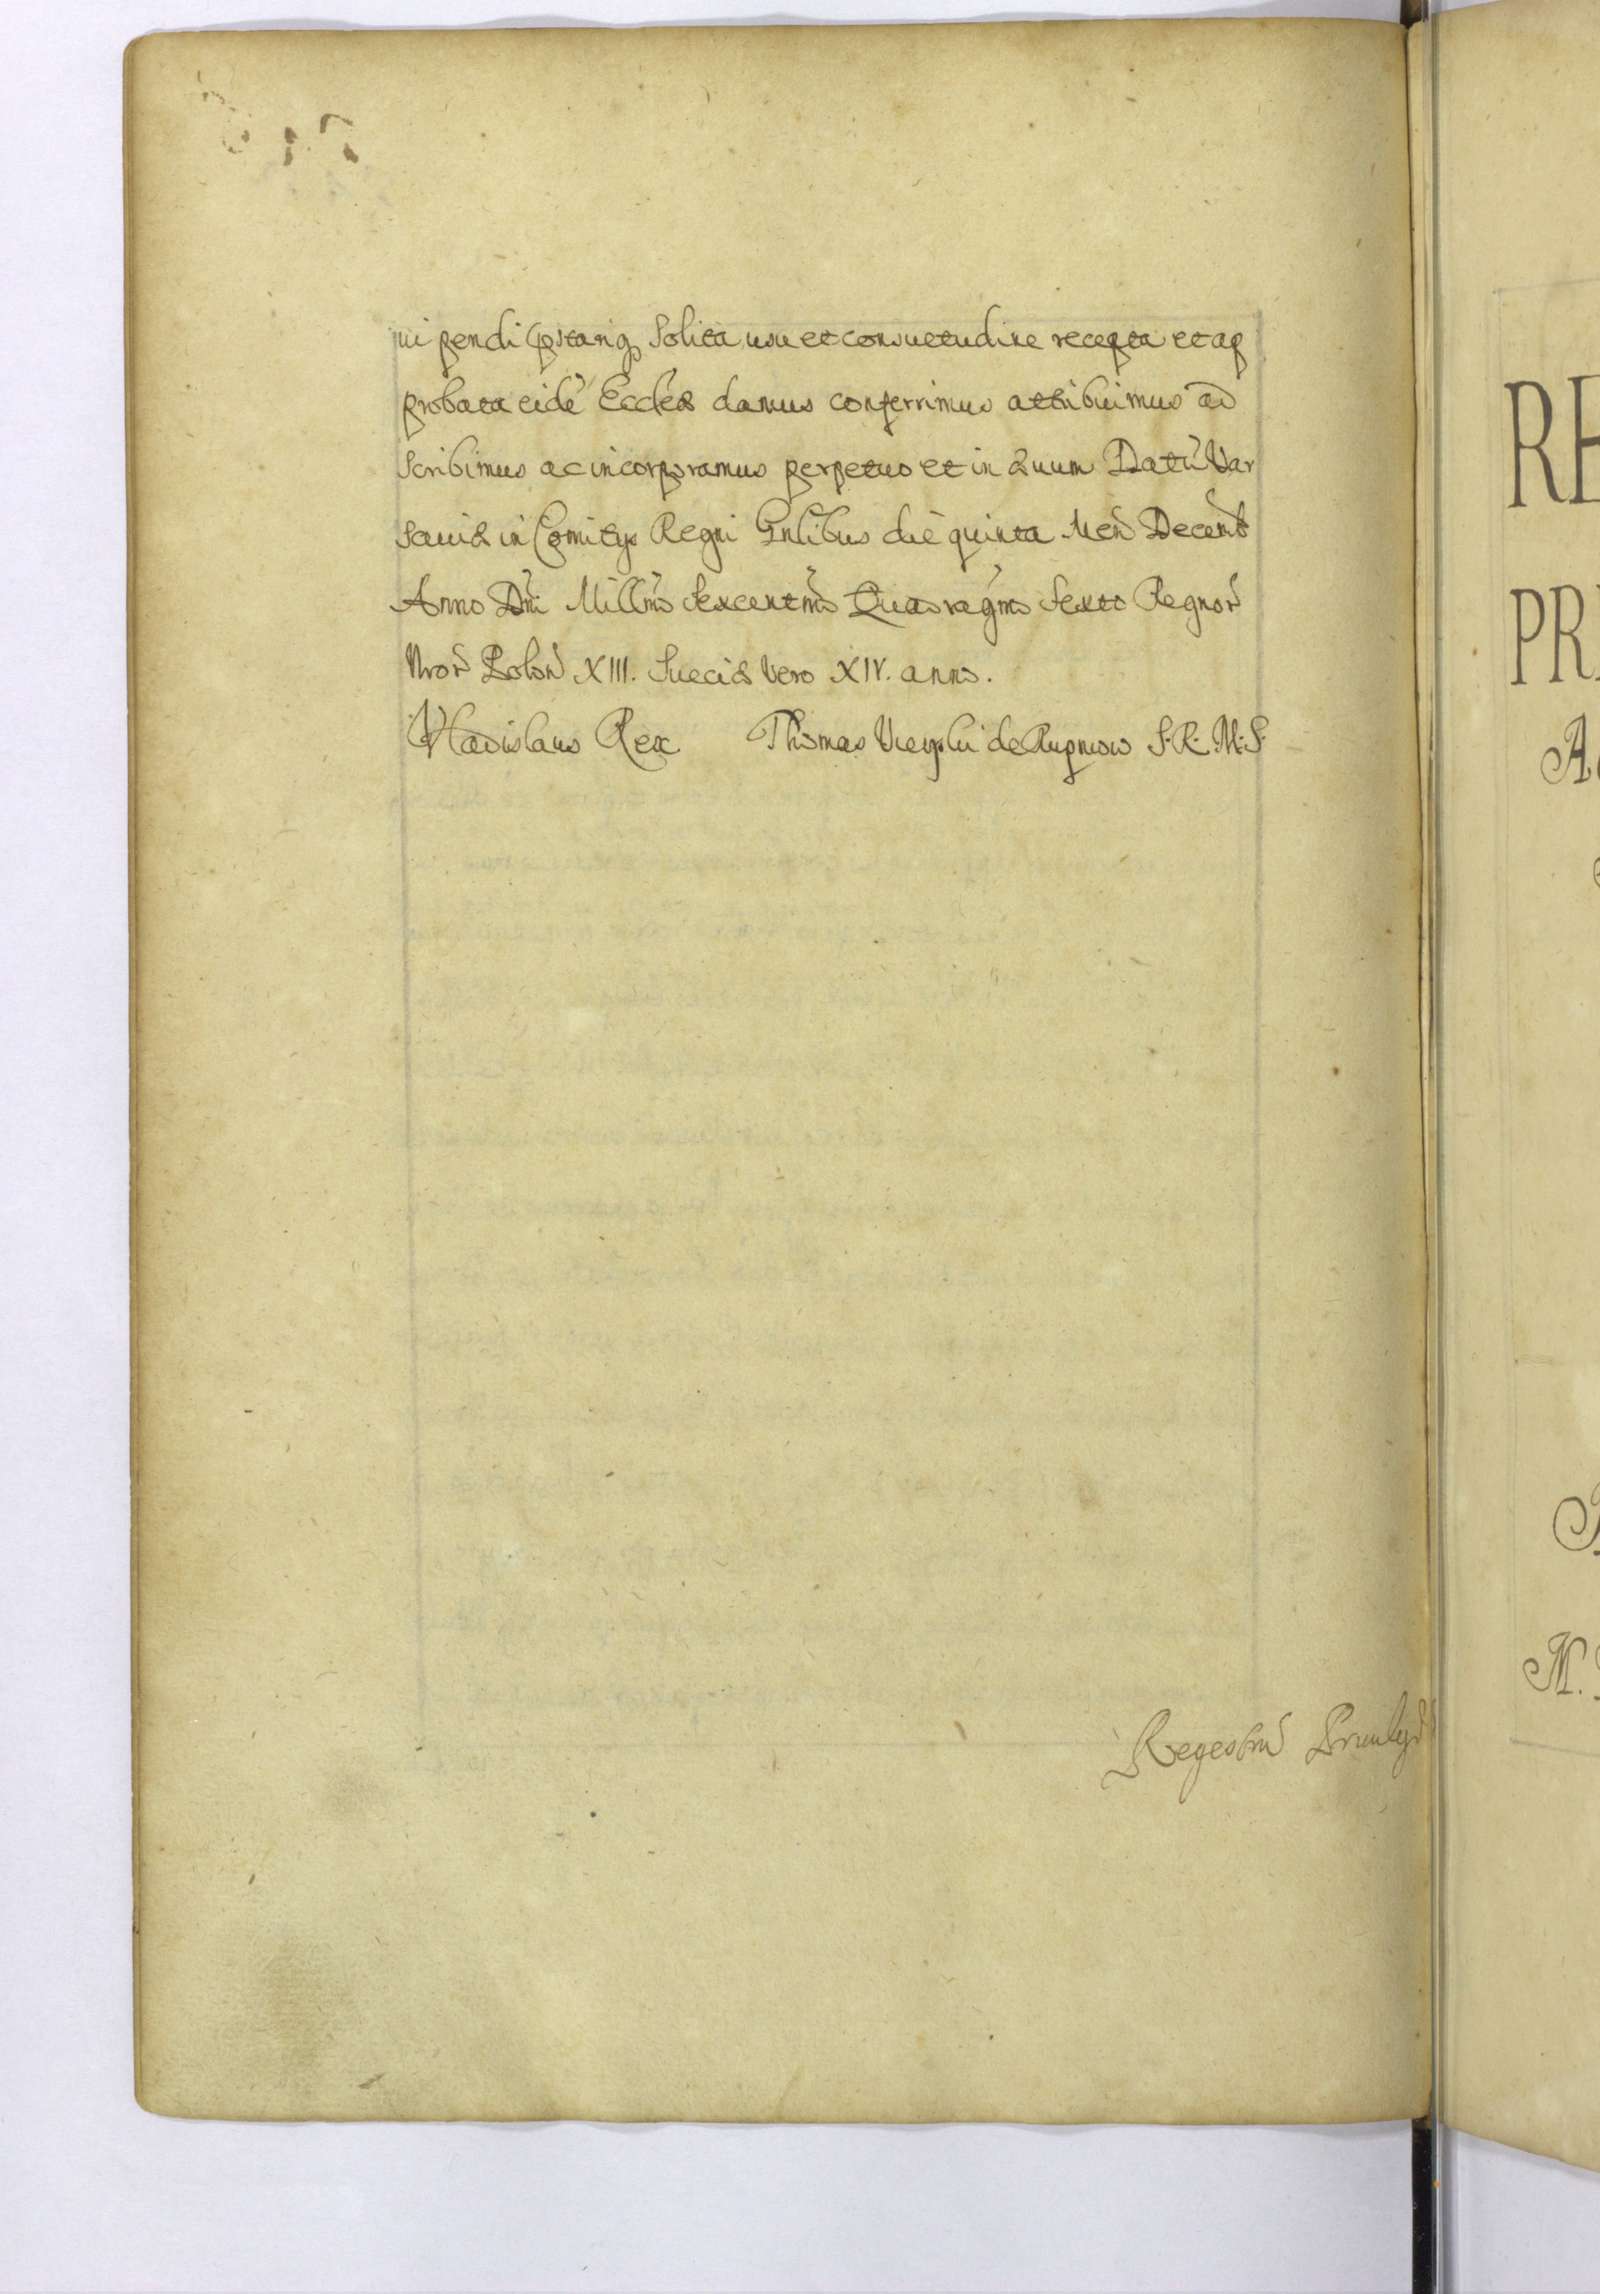 pendi solita usu et consuetudine recepta et ap
probata eidē Eccles danus conferrimus attribuimus ad
scribimus ac incorporamus perpetuo et in Datū Var
saviæ in Comitys Regni Gnlibus die quinta Men̄ Decemb
Anno Dni Millmo Sexcentmo Quadragmo Sexto Regnor
Nror Polon XIII. Sueciæ vero XIV. anno.
Vladislaus Rex Thomas de Rupniow S.R.M.S.
Regestrū
RE
PR
A
N.